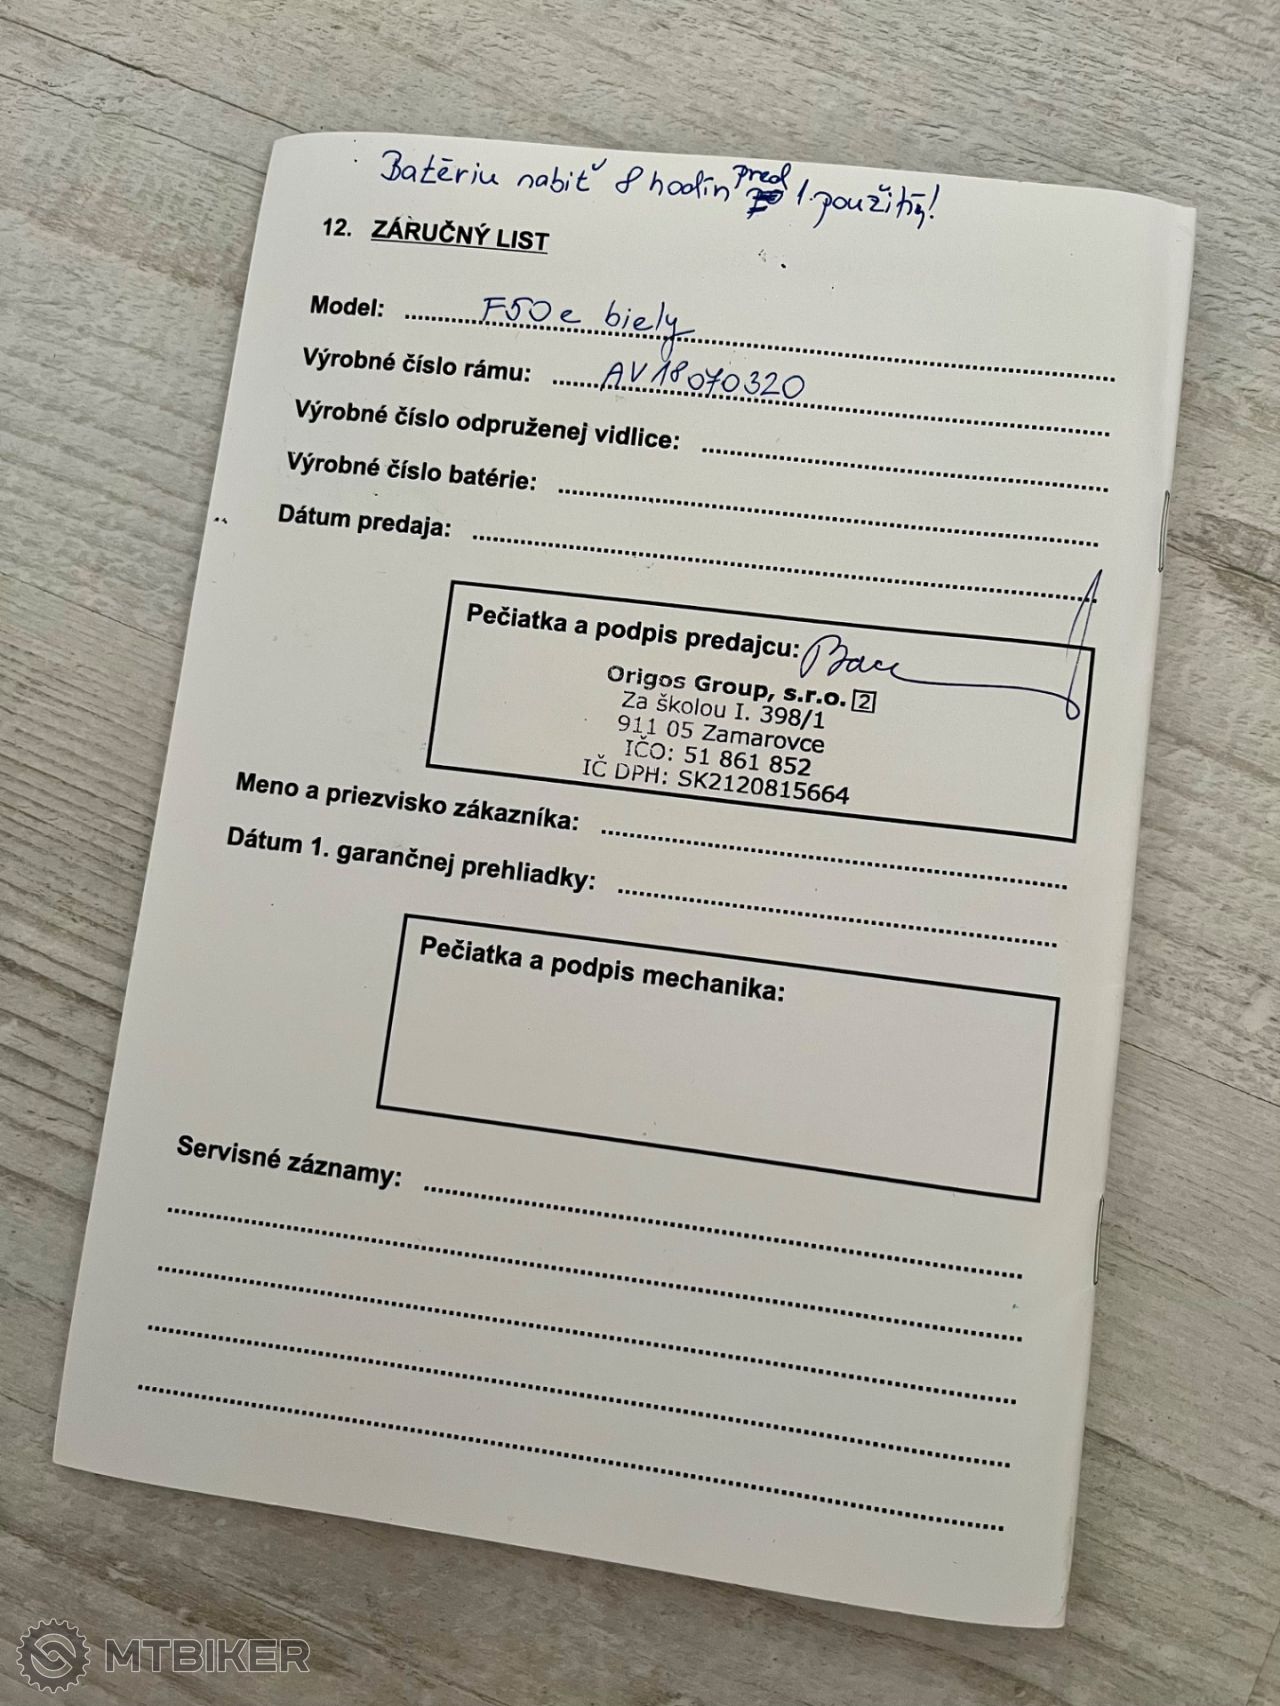 Batériu nabiť 8 hodín pred 1. použitím!
12. ZÁRUČNÝ LIST
Model: F50e biely
Výrobné číslo rámu: AV18070320
Výrobné číslo odpruženej vidlice:
Výrobné číslo batérie:
Dátum predaja:
Pečiatka a podpis predajcu:
Origos Group, s.r.o. 2
Za školou I. 398/1
911 05 Zamarovce
IČO: 51 861 852
IČ DPH: SK2120815664
Meno a priezvisko zákazníka:
Dátum 1. garančnej prehliadky:
Pečiatka a podpis mechanika:
Servisné záznamy:
MTBIKER